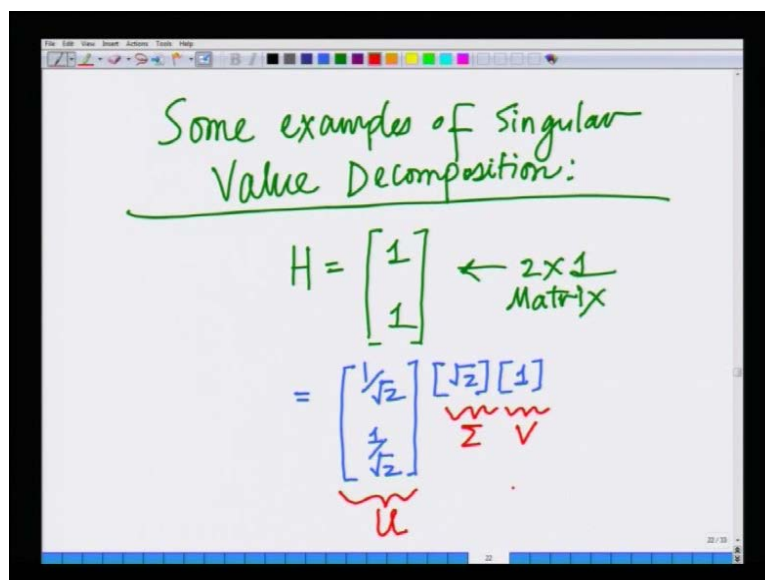 File Edit View Insert Actions Tools Help
Some examples of Singular
Value Decomposition:
H = [1 1] ← 2×1
Matrix
= [1/√2 1/√2] [√2] [1]
Σ V
U
22/33
22